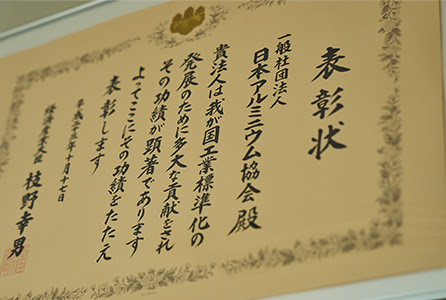 表彰状
一般社団法人
日本アルミニウム協会殿
貴法人は、我が国工業標準化の
発展のために多大な貢献をされ
その功績が顕著であります
よってここにその功績をたたえ
表彰します
平成二十三年十月十七日
経済産業大臣 枝野幸男